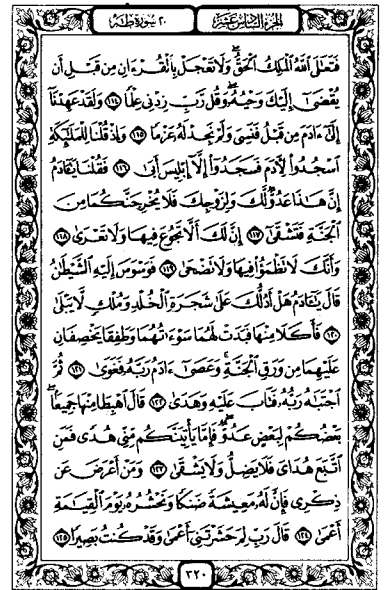 الجزء السادس عشر
٢٠ سورة طه
فَتَعَٰلَى ٱللَّهُ ٱلْمَلِكُ ٱلْحَقُّ ۗ وَلَا تَعْجَلْ بِٱلْقُرْءَانِ مِن قَبْلِ أَن
يُقْضَىٰٓ إِلَيْكَ وَحْيُهُۥ ۖ وَقُل رَّبِّ زِدْنِى عِلْمًا ١١٤ وَلَقَدْ عَهِدْنَآ
إِلَىٰٓ ءَادَمَ مِن قَبْلُ فَنَسِىَ وَلَمْ نَجِدْ لَهُۥ عَزْمًا ١١٥ وَإِذْ قُلْنَا لِلْمَلَٰٓئِكَةِ
ٱسْجُدُوا۟ لِءَادَمَ فَسَجَدُوٓا۟ إِلَّآ إِبْلِيسَ أَبَىٰ ١١٦ فَقُلْنَا يَٰٓـَٔادَمُ
إِنَّ هَٰذَا عَدُوٌّ لَّكَ وَلِزَوْجِكَ فَلَا يُخْرِجَنَّكُمَا مِنَ
ٱلْجَنَّةِ فَتَشْقَىٰٓ ١١٧ إِنَّ لَكَ أَلَّا تَجُوعَ فِيهَا وَلَا تَعْرَىٰ ١١٨
وَأَنَّكَ لَا تَظْمَؤُا۟ فِيهَا وَلَا تَضْحَىٰ ١١٩ فَوَسْوَسَ إِلَيْهِ ٱلشَّيْطَٰنُ
قَالَ يَٰٓـَٔادَمُ هَلْ أَدُلُّكَ عَلَىٰ شَجَرَةِ ٱلْخُلْدِ وَمُلْكٍ لَّا يَبْلَىٰ
١٢٠ فَأَكَلَا مِنْهَا فَبَدَتْ لَهُمَا سَوْءَٰتُهُمَا وَطَفِقَا يَخْصِفَانِ
عَلَيْهِمَا مِن وَرَقِ ٱلْجَنَّةِ ۚ وَعَصَىٰٓ ءَادَمُ رَبَّهُۥ فَغَوَىٰ ١٢١ ثُمَّ
ٱجْتَبَٰهُ رَبُّهُۥ فَتَابَ عَلَيْهِ وَهَدَىٰ ١٢٢ قَالَ ٱهْبِطَا مِنْهَا جَمِيعًۢا ۖ
بَعْضُكُمْ لِبَعْضٍ عَدُوٌّ ۖ فَإِمَّا يَأْتِيَنَّكُم مِّنِّى هُدًى فَمَنِ
ٱتَّبَعَ هُدَاىَ فَلَا يَضِلُّ وَلَا يَشْقَىٰ ١٢٣ وَمَنْ أَعْرَضَ عَن
ذِكْرِى فَإِنَّ لَهُۥ مَعِيشَةً ضَنكًا وَنَحْشُرُهُۥ يَوْمَ ٱلْقِيَٰمَةِ
أَعْمَىٰ ١٢٤ قَالَ رَبِّ لِمَ حَشَرْتَنِىٓ أَعْمَىٰ وَقَدْ كُنتُ بَصِيرًا ١٢٥
٣٢٠